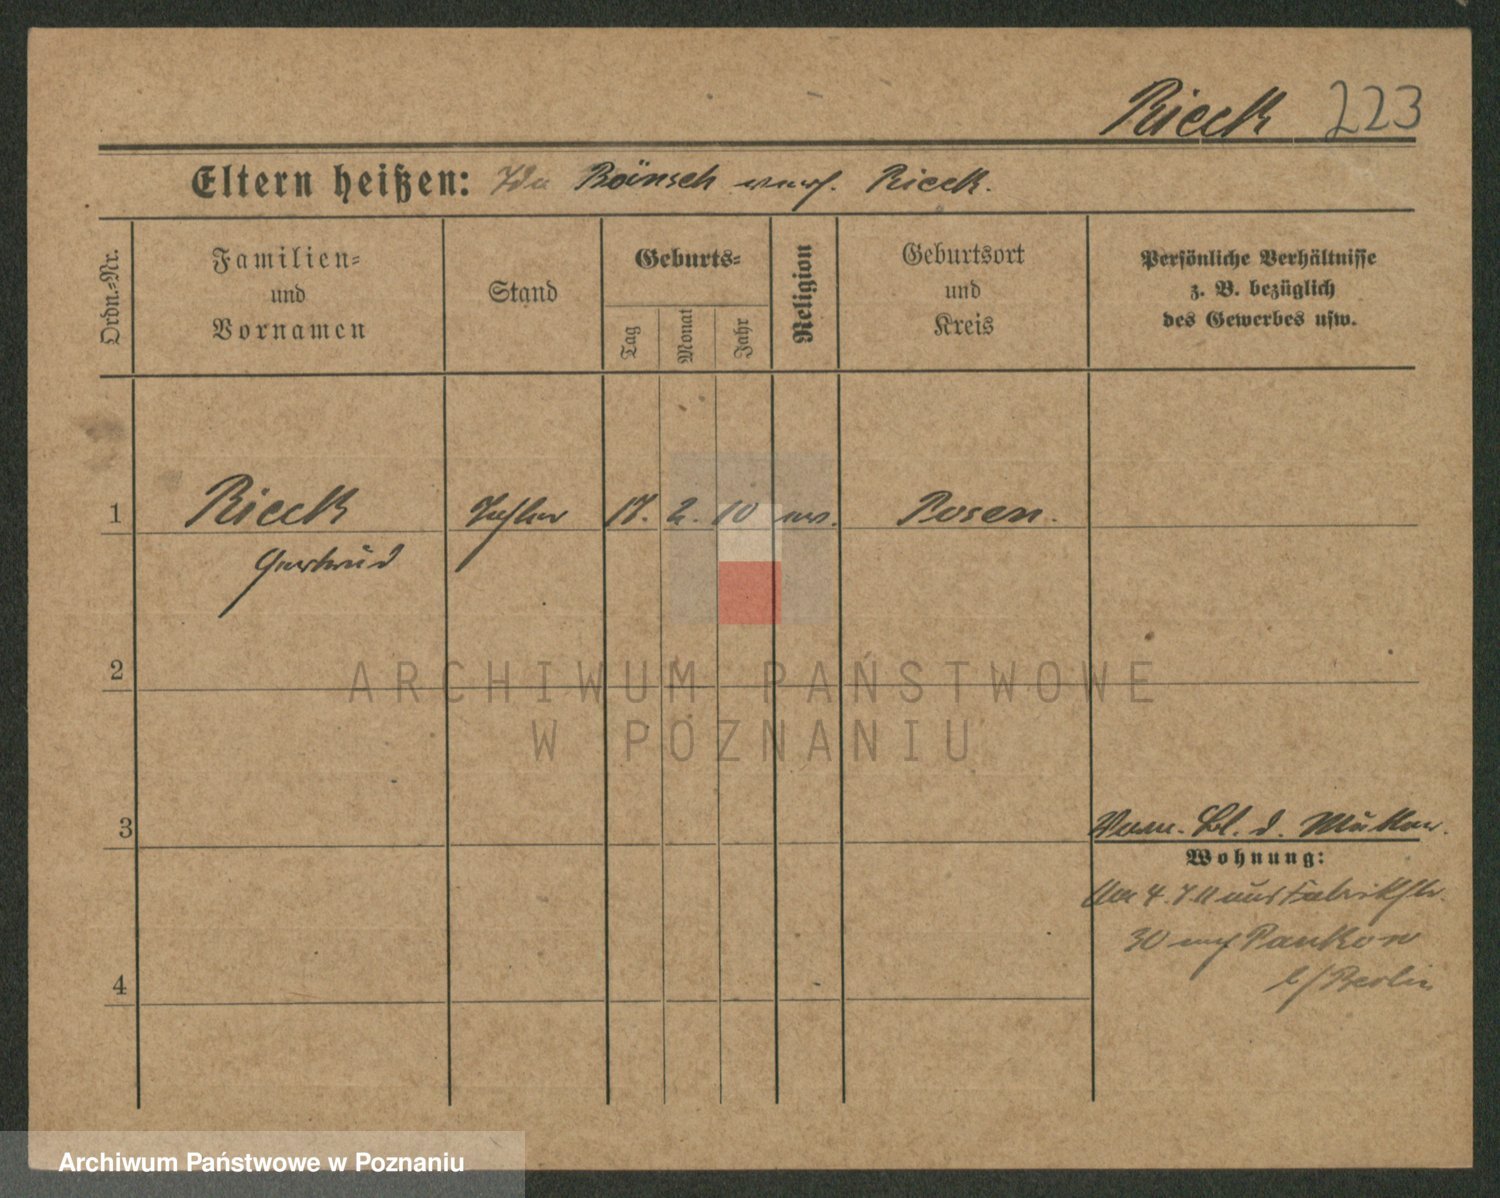 Rieck 223
Eltern heißen: Ida Bänsch verehl. Rieck.
Ordn.-Nr.
Familien-
und
Vornamen
Stand
Geburts-
Tag
Monat
Jahr
Religion
Geburtsort
und
Kreis
Persönliche Verhältnisse
z. B. bezüglich
des Gewerbes usw.
1 Rieck Tochter 17. 2. 10 ev. Posen.
Gertrud
2
3
4
d. Mutter.
Wohnung:
4. 7. 11 aus Fabrikstr.
30 nach Pankow
b/Berlin
ARCHIWUM PAŃSTWOWE
W POZNANIU
Archiwum Państwowe w Poznaniu